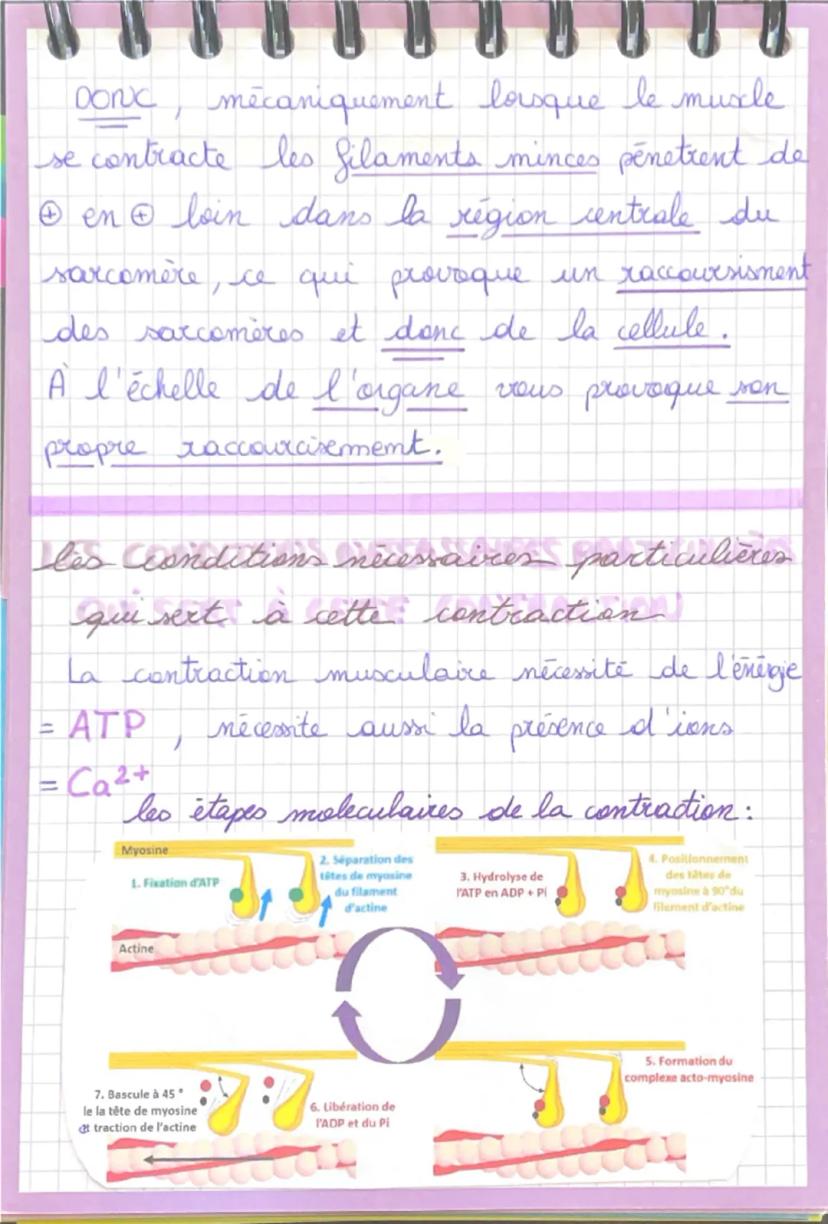 DONC, mécaniquement lorsque le muscle
se contracte les filaments minces pénetrent de
⊕ en ⊕ loin dans la région centrale du
sarcomère, ce qui provoque un raccoursisment
des sarcomères et donc de la cellule.
À l'échelle de l'organe vous provoque son
propre raccourcisement.
les conditions nécessaires particulières
qui sert à cette contraction
La contraction musculaire nécessité de l'énérgie
= ATP, nécessite aussi la présence d'ions
= Ca²⁺
les étapes moleculaires de la contraction :
Myosine
1. Fixation d'ATP
2. Séparation des
têtes de myosine
du filament
d'actine
Actine
3. Hydrolyse de
l'ATP en ADP + Pi
4. Positionnement
des têtes de
myosine à 90°du
filement d'actine
7. Bascule à 45 °
le la tête de myosine
et traction de l'actine
6. Libération de
l'ADP et du Pi
5. Formation du
complexe acto-myosine